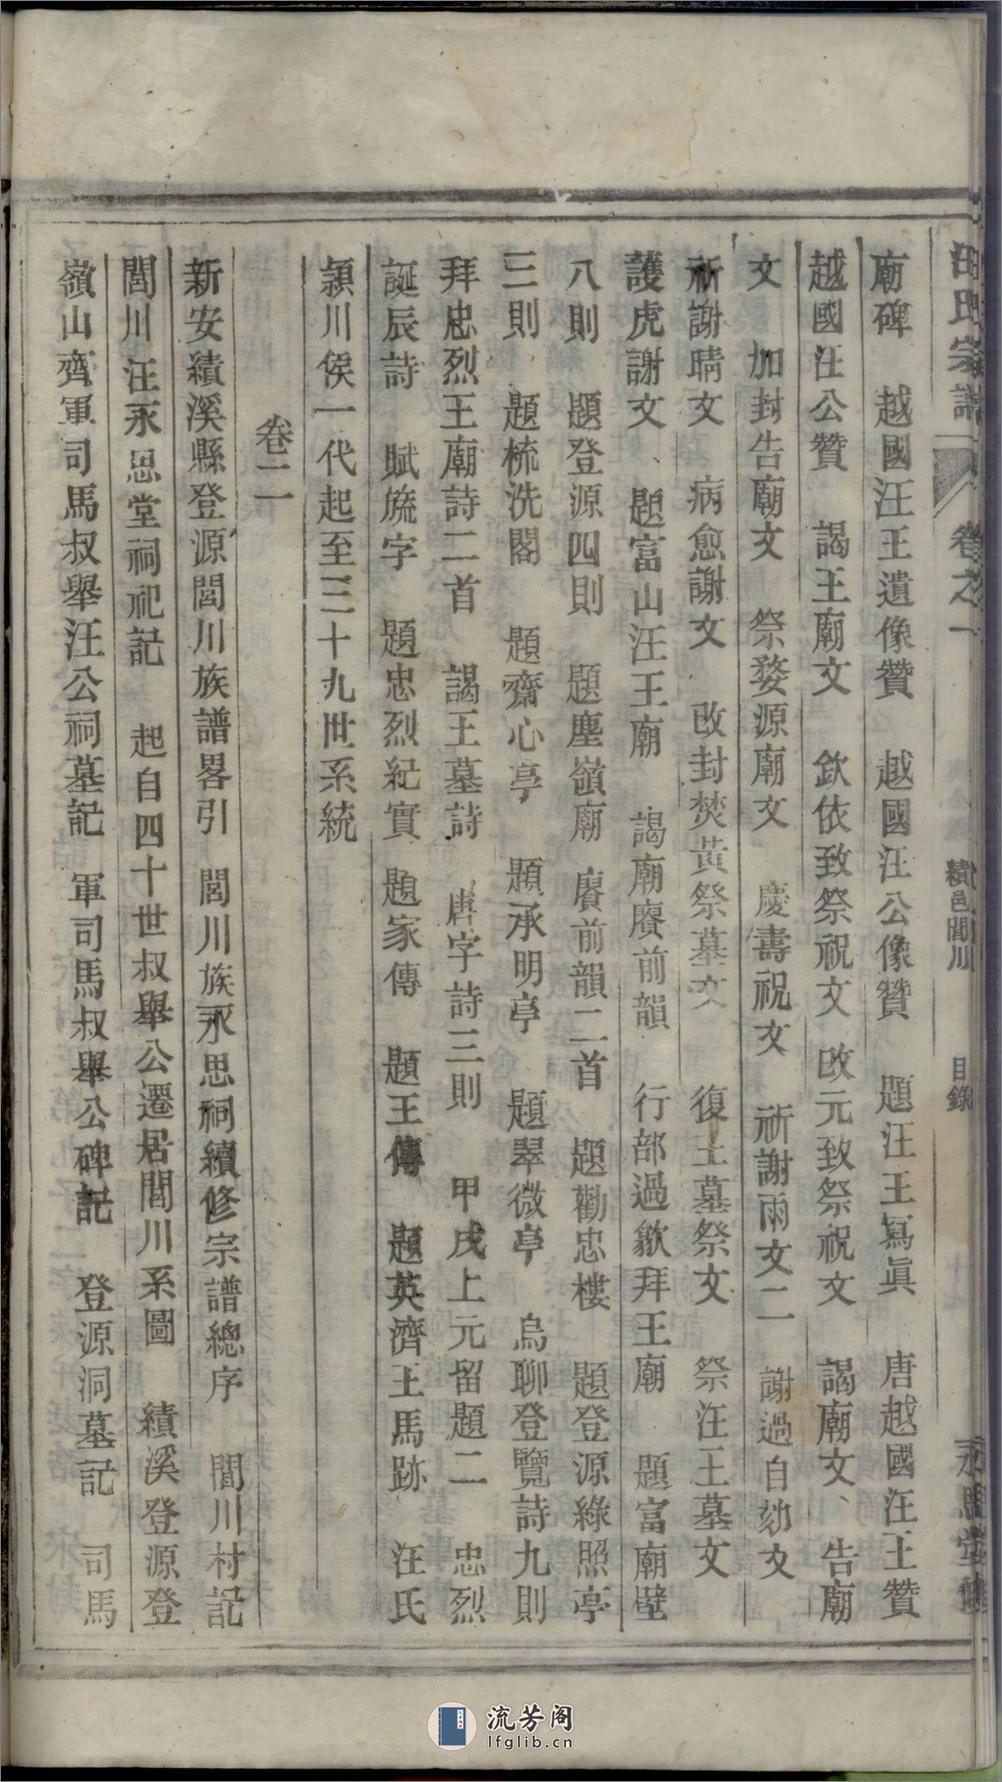 汪氏宗譜 卷之一 績邑閭川 目錄 永思堂
廟碑 越國汪王遺像贊 越國汪公像贊 題汪王寫眞 唐越國汪王贊
越國汪公贊 謁王廟文 欽依致祭祝文 改元致祭祝文 謁廟文、告廟
文 加封告廟文 祭婺源廟文 慶壽祝文 祈謝雨文二 謝過自劾文
祈謝晴文 病愈謝文 改封焚黃祭墓文 復王墓祭文 祭汪王墓文
護虎謝文、題富山汪王廟 謁廟賡前韻 行部過歙拜王廟 題富廟壁
八則 題登源四則 題塵嶺廟 賡前韻二首 題勸忠樓 題登源綠照亭
三則 題梳洗閣 題齋心亭 題承明亭 題翠微亭 烏聊登覽詩九則
拜忠烈王廟詩二首 謁王墓詩 唐字詩三則 甲戌上元留題二 忠烈
誕辰詩 賦旒字 題忠烈紀實 題家傳 題王傳 題英濟王馬跡 汪氏
潁川侯一代起至三十九世系統
卷二
新安績溪縣登源閭川族譜畧引 閭川族永思祠續修宗譜總序 閭川村記
閭川汪永思堂祠祀記 起自四十世叔舉公遷居閭川系圖 績溪登源登
嶺山齊軍司馬叔舉汪公祠墓記 軍司馬叔舉公碑記 登源洞墓記 司馬
流芳阁
lfglib.cn